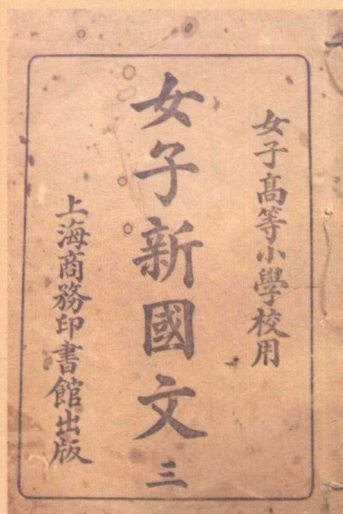 女子高等小學校用
女子新國文 三
上海商務印書館出版